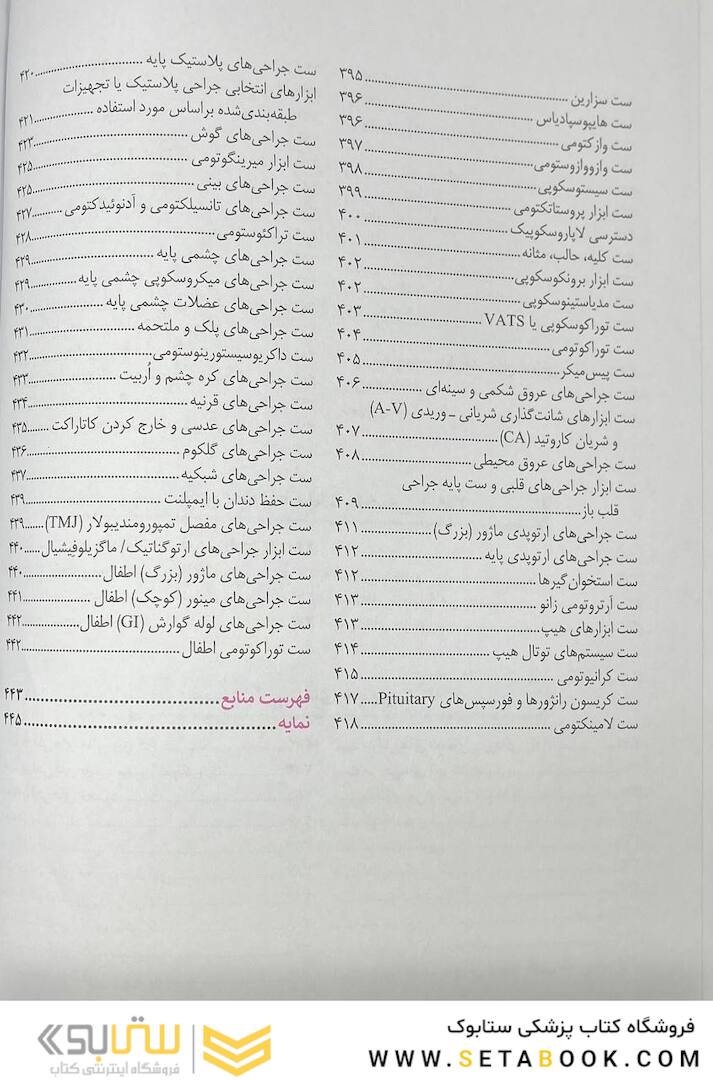 ست سزارین ۳۹۵
ست هایپوسپادیاس ۳۹۶
ست وازکتومی ۳۹۶
ست وازووازوستومی ۳۹۷
ست سیستوسکوپی ۳۹۸
ست ابزار پروستاتکتومی ۳۹۹
دسترسی لاپاروسکوپیک ۴۰۰
ست کلیه، حالب، مثانه ۴۰۱
ست ابزار برونکوسکوپی ۴۰۲
ست مدیاستینوسکوپی ۴۰۲
ست توراکوسکوپی یا VATS ۴۰۳
ست توراکوتومی ۴۰۴
ست پیس‌میکر ۴۰۵
ست جراحی‌های عروق شکمی و سینه‌ای ۴۰۶
ست ابزارهای شانت‌گذاری شریانی -وریدی (A-V)
و شریان کاروتید (CA) ۴۰۷
ست جراحی‌های عروق محیطی ۴۰۸
ست ابزار جراحی‌های قلبی و ست پایه جراحی
قلب باز ۴۰۹
ست جراحی‌های ارتوپدی ماژور (بزرگ) ۴۱۱
ست جراحی‌های ارتوپدی پایه ۴۱۲
ست استخوان‌گیرها ۴۱۲
ست آرتروتومی زانو ۴۱۳
ست ابزارهای هیپ ۴۱۳
ست سیستم‌های توتال هیپ ۴۱۴
ست کرانیوتومی ۴۱۵
ست کریسون رانژورها و فورسپس‌های Pituitary ۴۱۷
ست لامینکتومی ۴۱۸
ست جراحی‌های پلاستیک پایه ۴۲۰
ابزارهای انتخابی جراحی پلاستیک یا تجهیزات
طبقه‌بندی‌شده براساس مورد استفاده ۴۲۱
ست جراحی‌های گوش ۴۲۳
ست ابزار میرینگوتومی ۴۲۵
ست جراحی‌های بینی ۴۲۵
ست جراحی‌های تانسیلکتومی و آدنوئیدکتومی ۴۲۷
ست تراکئوستومی ۴۲۸
ست جراحی‌های چشمی پایه ۴۲۹
ست جراحی‌های میکروسکوپی چشمی پایه ۴۲۹
ست جراحی‌های عضلات چشمی پایه ۴۳۰
ست جراحی‌های پلک و ملتحمه ۴۳۱
ست داکریوسیستورینوستومی ۴۳۲
ست جراحی‌های کره چشم و اُربیت ۴۳۳
ست جراحی‌های قرنیه ۴۳۴
ست جراحی‌های عدسی و خارج کردن کاتاراکت ۴۳۵
ست جراحی‌های گلکوم ۴۳۶
ست جراحی‌های شبکیه ۴۳۷
ست حفظ دندان با ایمپلنت ۴۳۹
ست جراحی‌های مفصل تمپورومندیبولار (TMJ) ۴۳۹
ست ابزار جراحی‌های ارتوگناتیک/ ماگزیلوفیشیال ۴۴۰
ست جراحی‌های ماژور (بزرگ) اطفال ۴۴۰
ست جراحی‌های مینور (کوچک) اطفال ۴۴۱
ست جراحی‌های لوله گوارش (GI) اطفال ۴۴۲
ست توراکوتومی اطفال ۴۴۲
فهرست منابع ۴۴۳
نمایه ۴۴۵
فروشگاه کتاب پزشکی ستابوک
WWW.SETABOOK.COM
ستابوک
فروشگاه اینترنتی کتاب